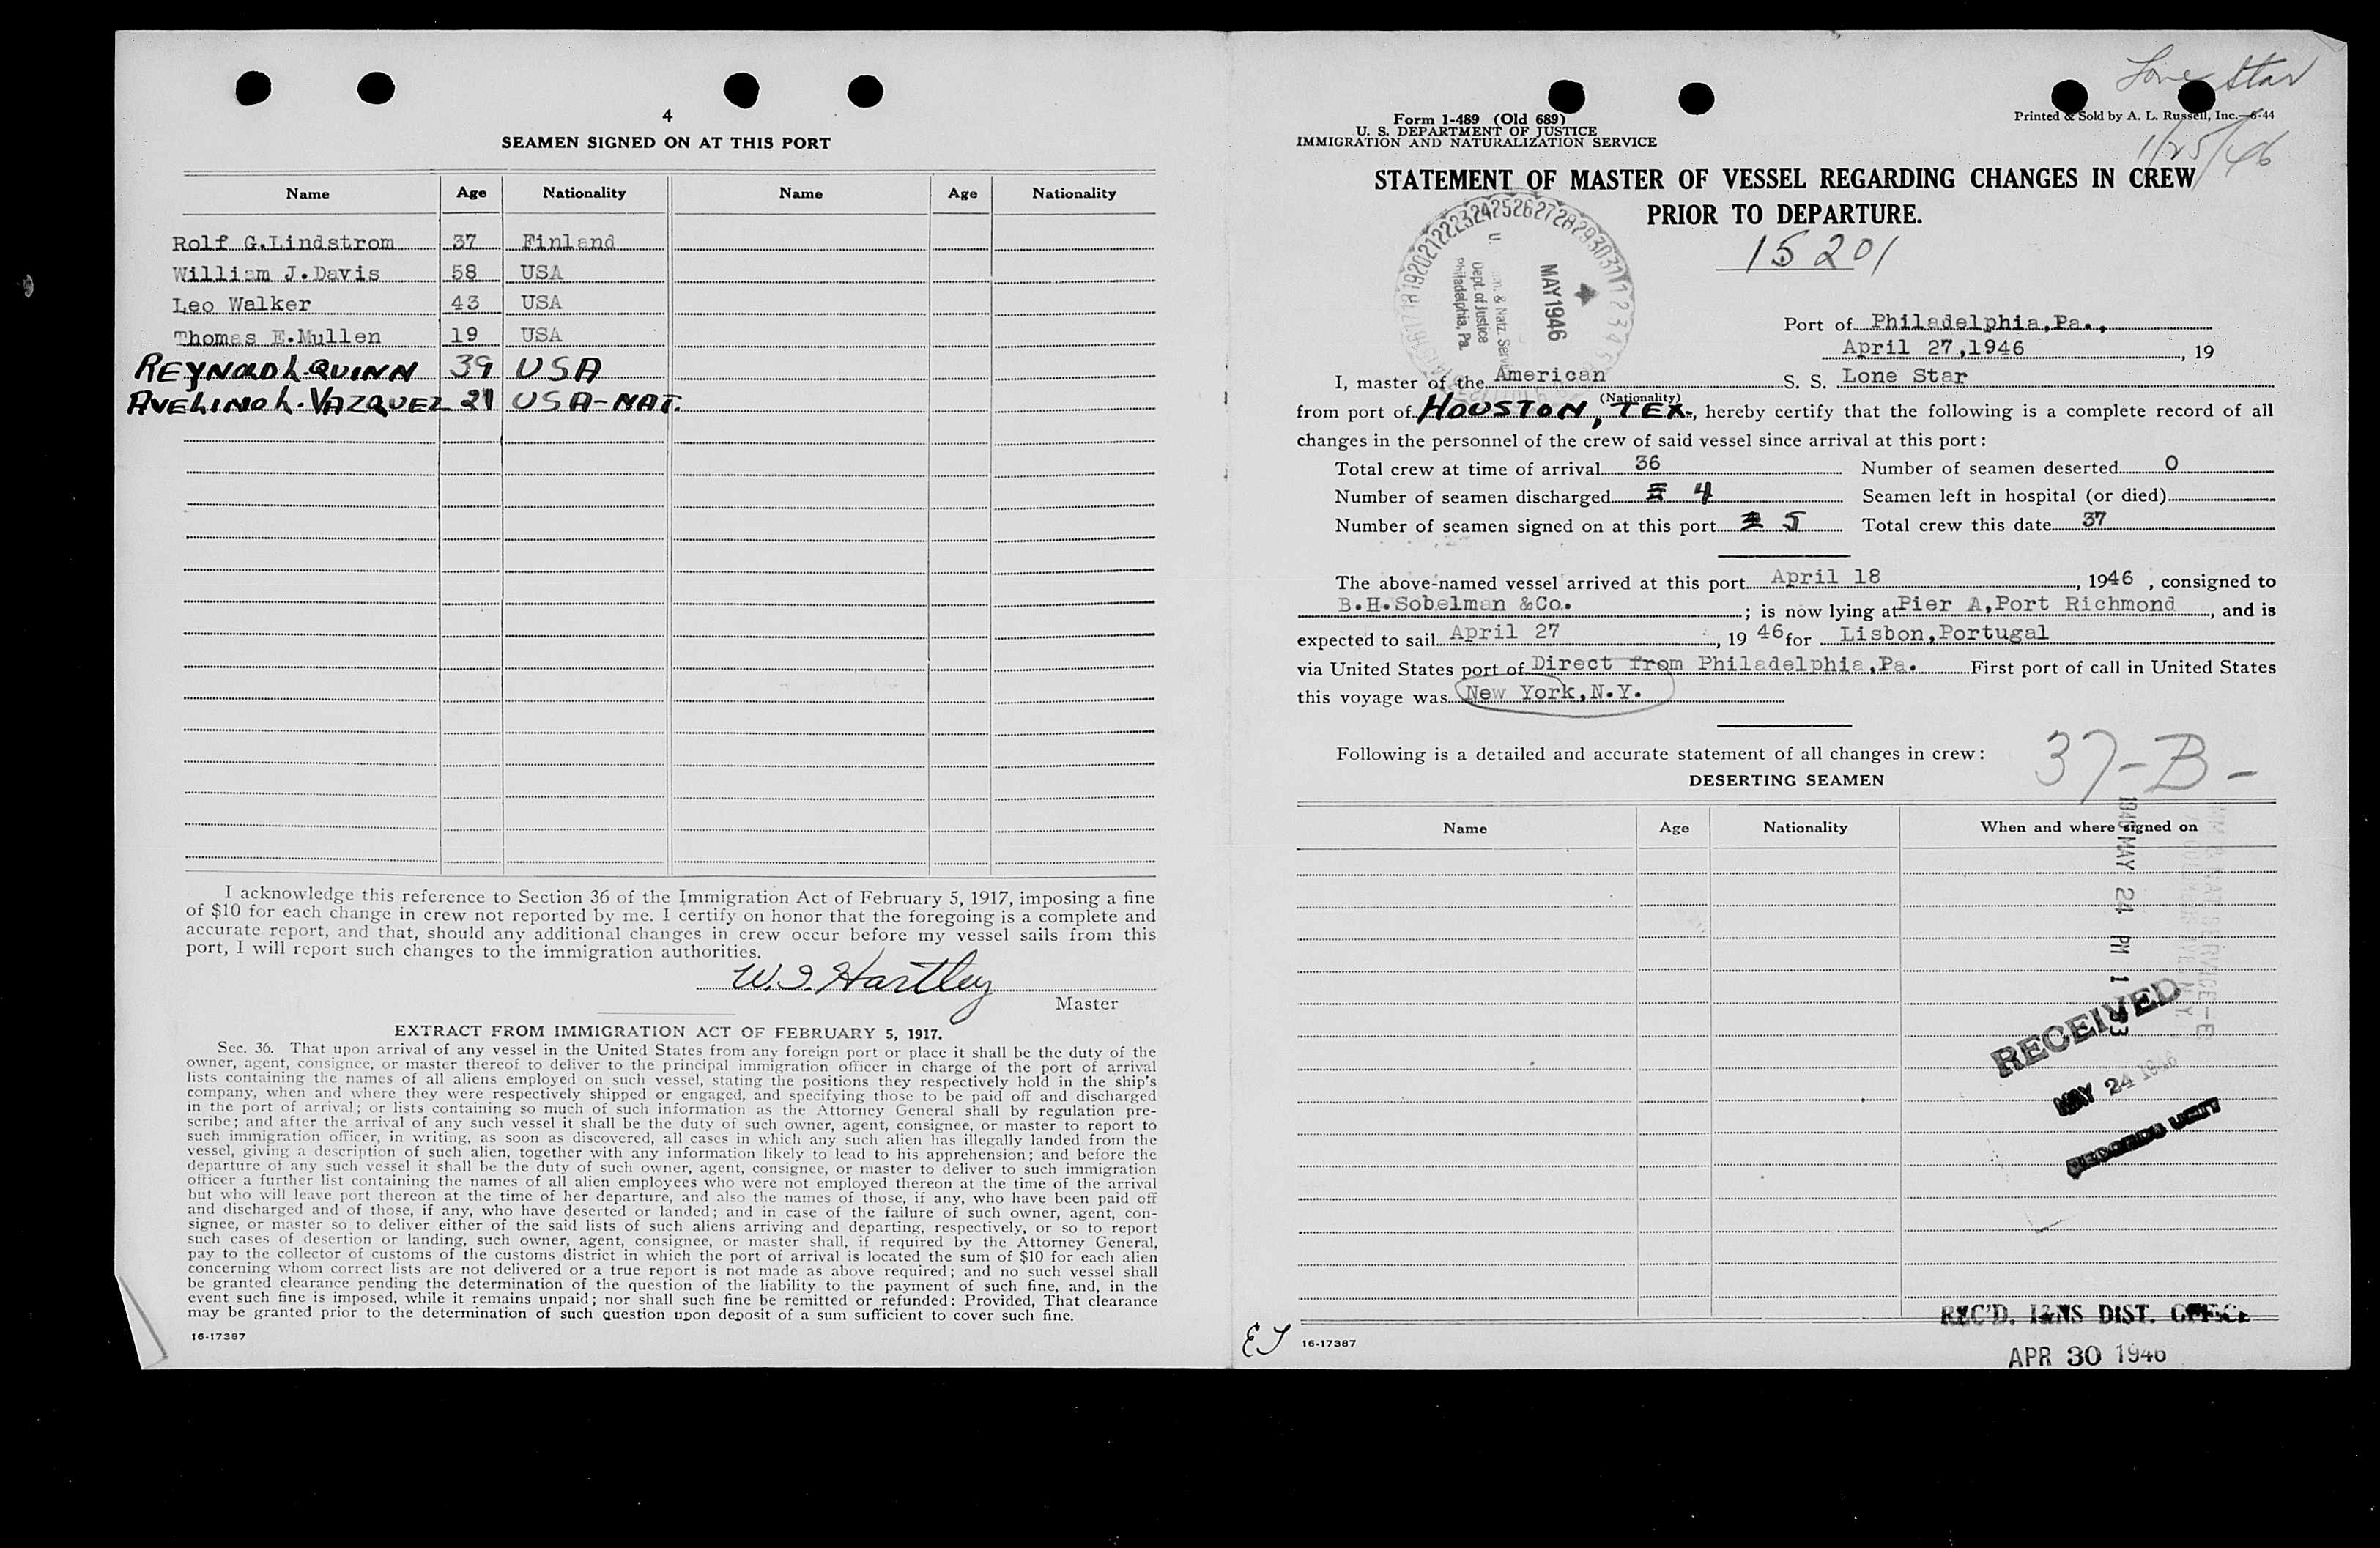 4
SEAMEN SIGNED ON AT THIS PORT
Name Age Nationality Name Age Nationality
Rolf G.Lindstrom 37 Finland
William J.Davis 58 USA
Leo Walker 43 USA
Thomas E.Mullen 19 USA
REYNOLD L QUINN 39 USA
AVELINO L. VAZQUEZ 21 USA-NAT.
I acknowledge this reference to Section 36 of the Immigration Act of February 5, 1917, imposing a fine
of $10 for each change in crew not reported by me. I certify on honor that the foregoing is a complete and
accurate report, and that, should any additional changes in crew occur before my vessel sails from this
port, I will report such changes to the immigration authorities.
W.I. Hartley
Master
EXTRACT FROM IMMIGRATION ACT OF FEBRUARY 5, 1917.
Sec. 36. That upon arrival of any vessel in the United States from any foreign port or place it shall be the duty of the
owner, agent, consignee, or master thereof to deliver to the principal immigration officer in charge of the port of arrival
lists containing the names of all aliens employed on such vessel, stating the positions they respectively hold in the ship's
company, when and where they were respectively shipped or engaged, and specifying those to be paid off and discharged
in the port of arrival; or lists containing so much of such information as the Attorney General shall by regulation pre-
scribe; and after the arrival of any such vessel it shall be the duty of such owner, agent, consignee, or master to report to
such immigration officer, in writing, as soon as discovered, all cases in which any such alien has illegally landed from the
vessel, giving a description of such alien, together with any information likely to lead to his apprehension; and before the
departure of any such vessel it shall be the duty of such owner, agent, consignee, or master to deliver to such immigration
officer a further list containing the names of all alien employees who were not employed thereon at the time of the arrival
but who will leave port thereon at the time of her departure, and also the names of those, if any, who have been paid off
and discharged and of those, if any, who have deserted or landed; and in case of the failure of such owner, agent, con-
signee, or master so to deliver either of the said lists of such aliens arriving and departing, respectively, or so to report
such cases of desertion or landing, such owner, agent, consignee, or master shall, if required by the Attorney General,
pay to the collector of customs of the customs district in which the port of arrival is located the sum of $10 for each alien
concerning whom correct lists are not delivered or a true report is not made as above required; and no such vessel shall
be granted clearance pending the determination of the question of the liability to the payment of such fine, and, in the
event such fine is imposed, while it remains unpaid; nor shall such fine be remitted or refunded: Provided, That clearance
may be granted prior to the determination of such question upon deposit of a sum sufficient to cover such fine.
16-17387
Lone Star
1/25/46
Form 1-489 (Old 689)
U. S. DEPARTMENT OF JUSTICE
IMMIGRATION AND NATURALIZATION SERVICE
Printed & Sold by A. L. Russell, Inc.—6-44
STATEMENT OF MASTER OF VESSEL REGARDING CHANGES IN CREW
PRIOR TO DEPARTURE.
15201
MAY 1946
& Natz. Serv.
Dept. of Justice
Philadelphia, Pa.
Port of Philadelphia,Pa.,
April 27,1946, 19
I, master of the American S. S. Lone Star
(Nationality)
from port of HOUSTON, TEX., hereby certify that the following is a complete record of all
changes in the personnel of the crew of said vessel since arrival at this port:
Total crew at time of arrival 36 Number of seamen deserted 0
Number of seamen discharged 4 Seamen left in hospital (or died)
Number of seamen signed on at this port 5 Total crew this date 37
The above-named vessel arrived at this port April 18, 1946, consigned to
B.H.Sobelman &Co.; is now lying at Pier A,Port Richmond, and is
expected to sail April 27, 1946 for Lisbon,Portugal
via United States port of Direct from Philadelphia,Pa. First port of call in United States
this voyage was New York,N.Y.
Following is a detailed and accurate statement of all changes in crew:
37-B-
DESERTING SEAMEN
Name Age Nationality When and where signed on
1946 MAY 24 PM 1
RECEIVED
MAY 24 1946
RECORDS UNIT
REC'D. I&NS DIST. OFFICE
APR 30 1946
16-17387